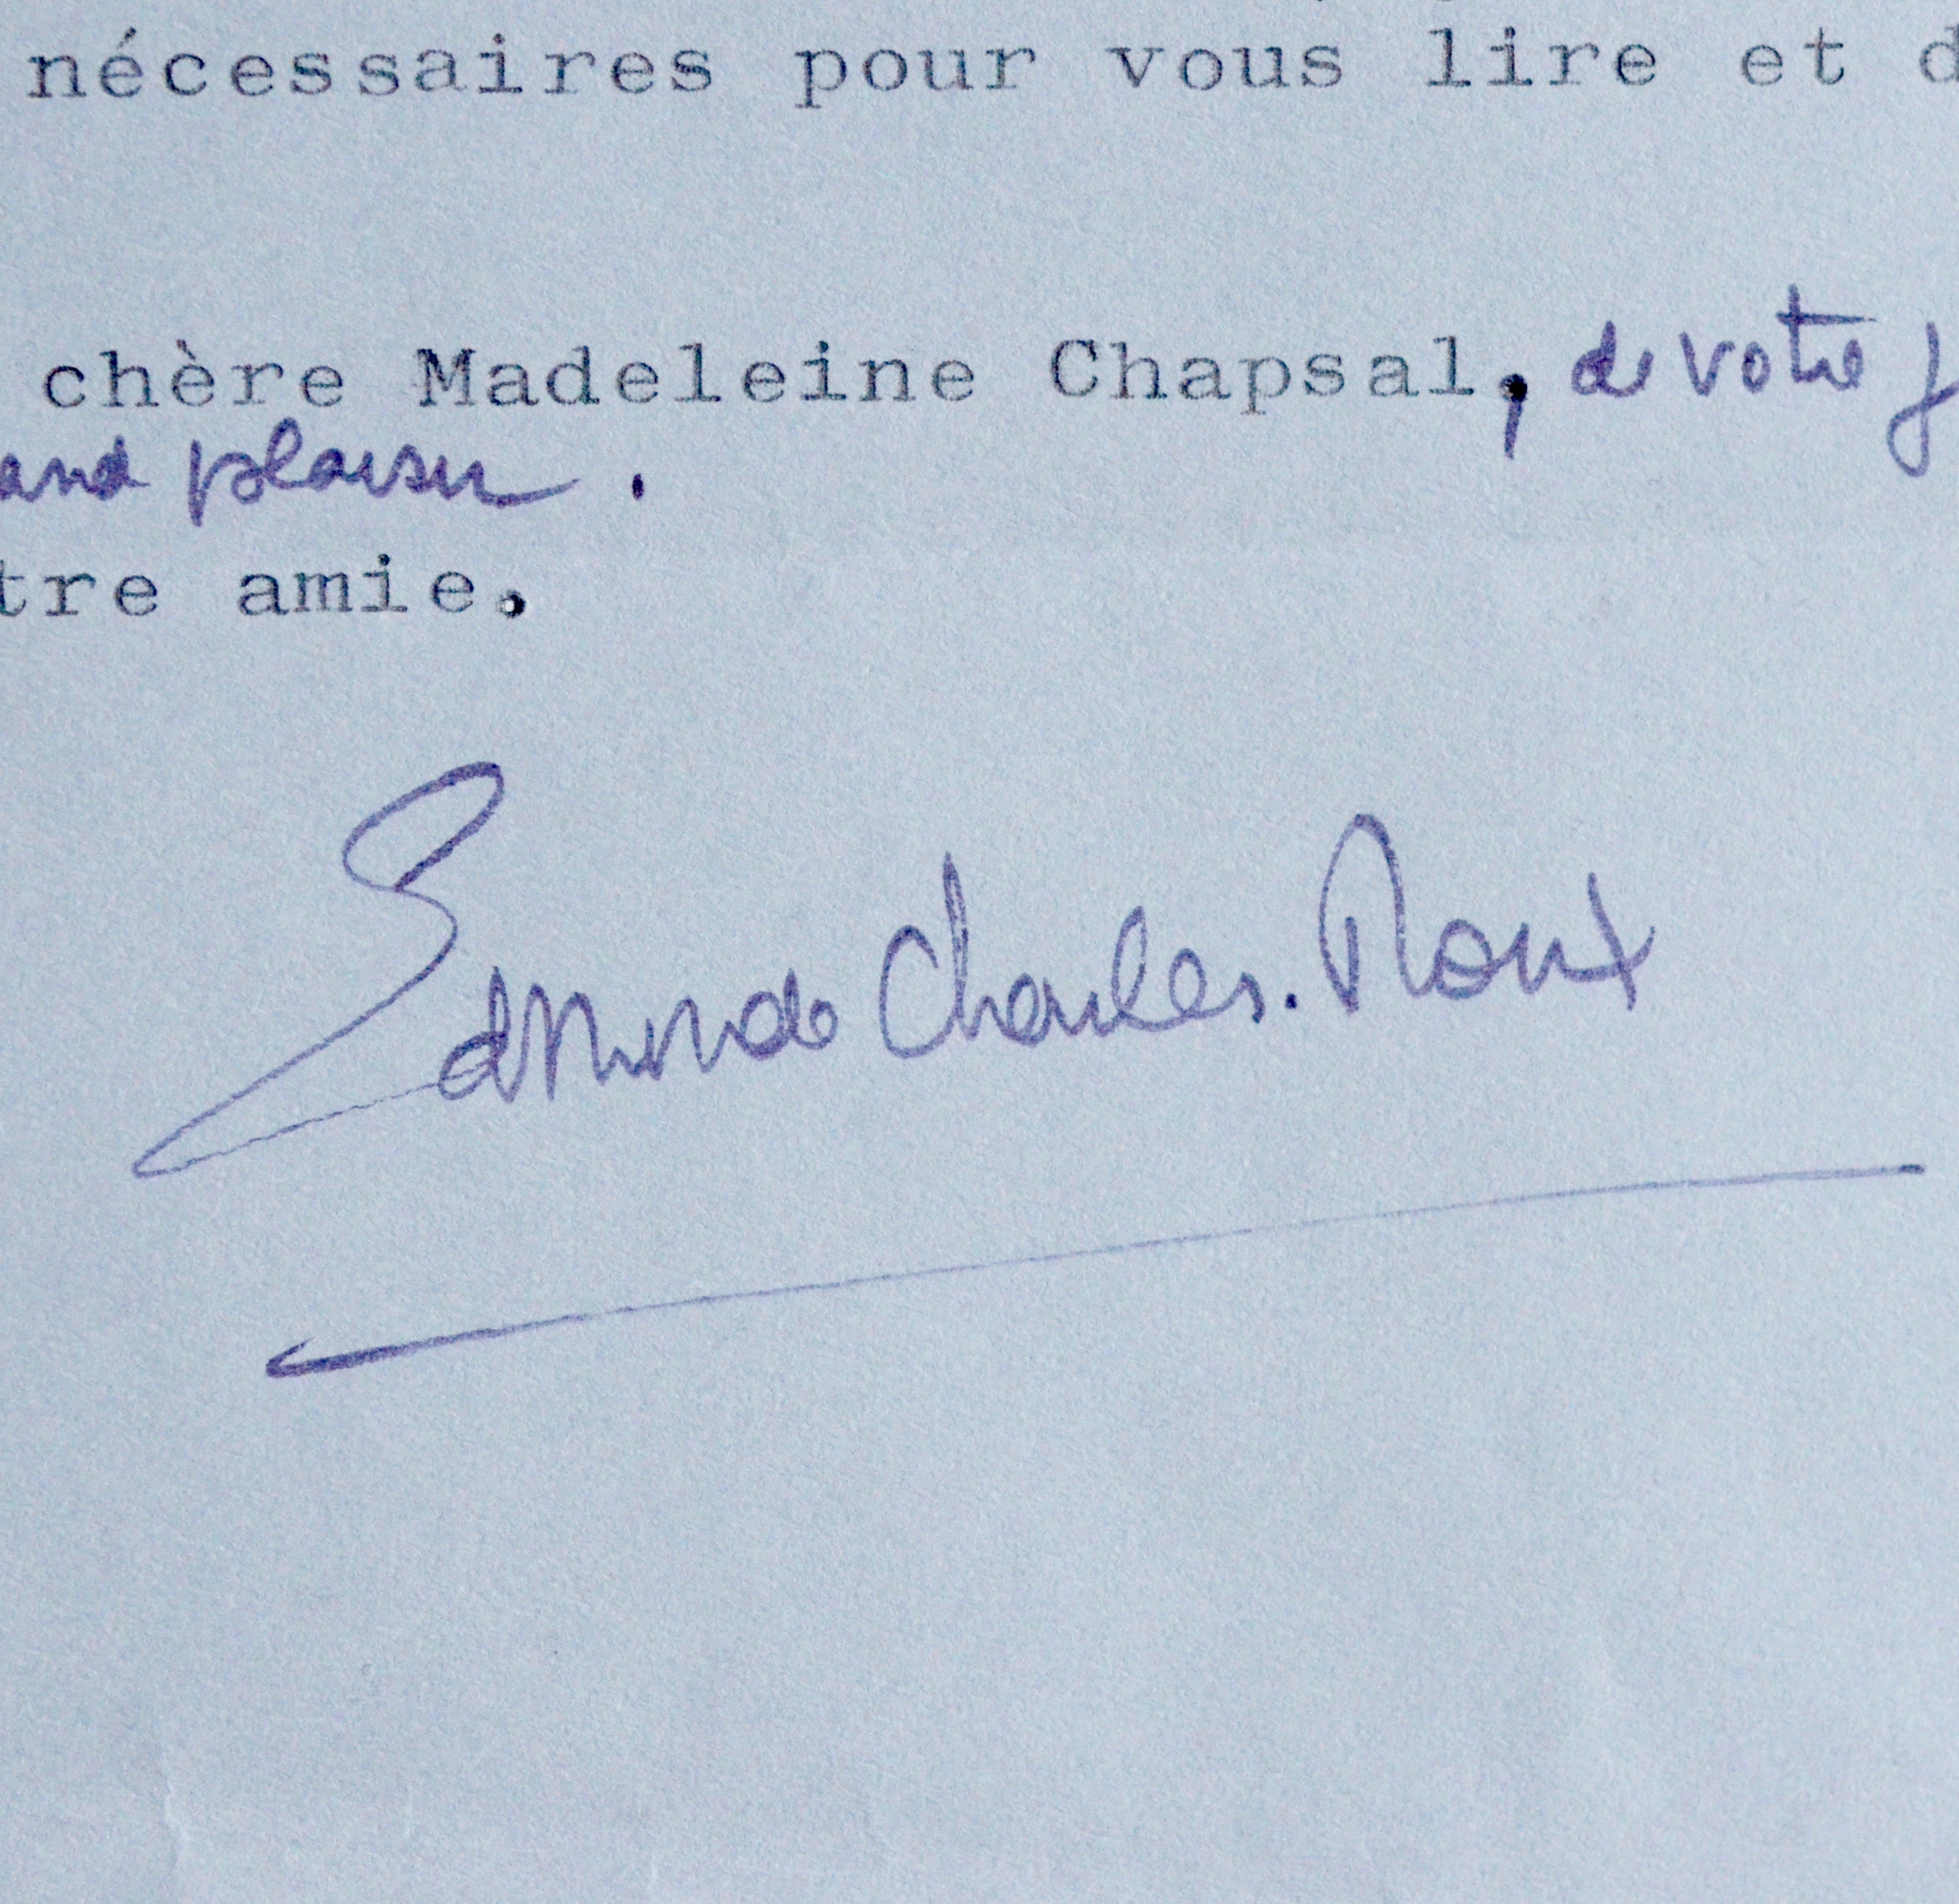 nécessaires pour vous lire et d
chère Madeleine Chapsal, de votre
and plaisir.
tre amie.
Edmonde Charles-Roux